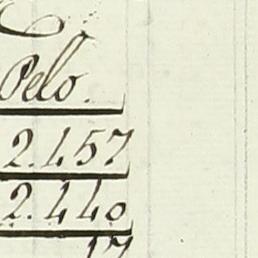 Pelo.
2.457
2.440
17